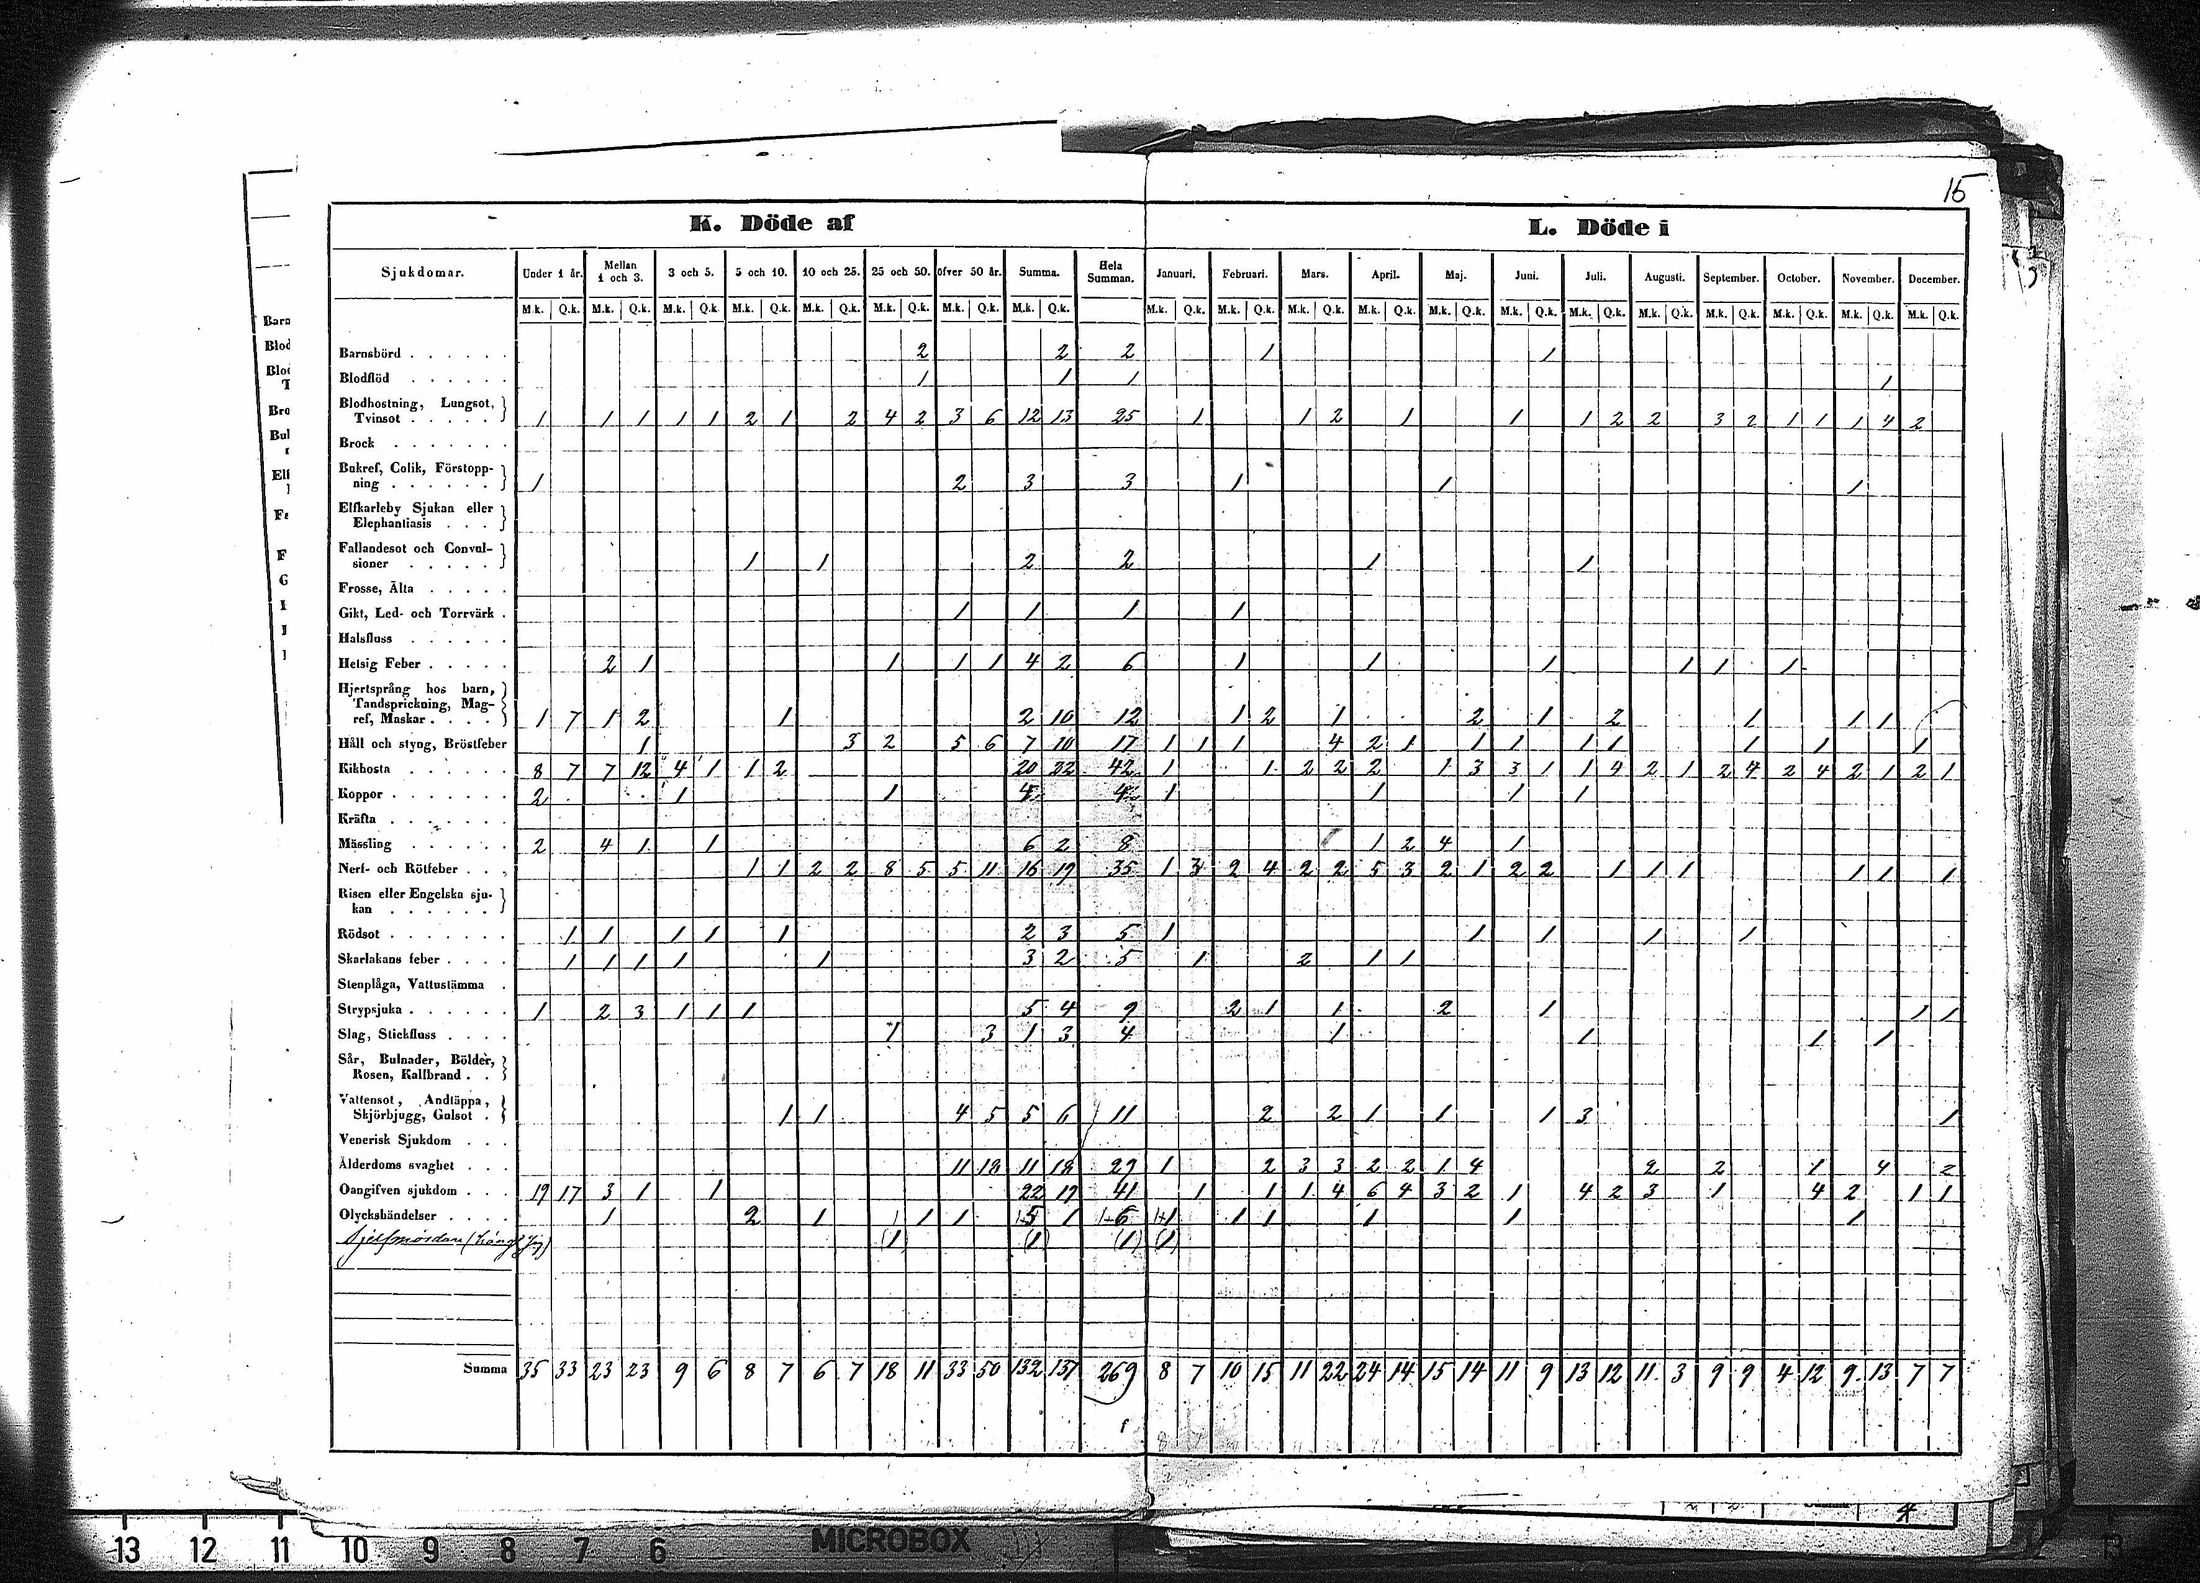 15
K. Döde af
L. Döde i
Sjukdomar. Under 1 år. Mellan 1 och 3. 3 och 5. 5 och 10. 10 och 25. 25 och 50. öfver 50 år. Summa. Hela Summan. Januari. Februari. Mars. April. Maj. Juni. Juli. Augusti. September. October. November. December.
M.k. Q.k. M.k. Q.k. M.k. Q.k. M.k. Q.k. M.k. Q.k. M.k. Q.k. M.k. Q.k. M.k. Q.k. M.k. Q.k. M.k. Q.k. M.k. Q.k. M.k. Q.k. M.k. Q.k. M.k. Q.k. M.k. Q.k. M.k. Q.k. M.k. Q.k. M.k. Q.k. M.k. Q.k. M.k. Q.k.
Barnsbörd 2 2 2 1 1
Blodflöd 1 1 1 1
Blodhostning, Lungsot,
Tvinsot 1 1 1 1 1 2 1 2 4 2 3 6 12 13 25 1 1 2 1 1 1 2 2 3 2 1 1 1 4 2
Brock
Bukref, Colik, Förstopp-
ning 1 2 3 3 1 1 1
Elfkarleby Sjukan eller
Elephantiasis
Fallandesot och Convul-
sioner 1 1 2 2 1 1
Frosse, Älta
Gikt, Led- och Torrvärk 1 1 1 1
Halsfluss
Hetsig Feber 2 1 1 1 1 4 2 6 1 1 1 1 1 1
Hjertsprång hos barn,
Tandsprickning, Mag-
ref, Maskar 1 7 1 2 1 2 10 12 1 2 1 2 1 2 1 1 1
Håll och styng, Bröstfeber 1 3 2 5 6 7 10 17 1 1 1 4 2 1 1 1 1 1 1 1 1
Kikhosta 8 7 7 12 4 1 1 2 20 22 42 1 1 2 2 2 1 3 3 1 1 4 2 1 2 4 2 4 2 1 2 1
Koppor 2 1 1 4 4 1 1 1 1
Kräfta
Mässling 2 4 1 1 6 2 8 1 2 4 1
Nerf- och Rötfeber 1 1 2 2 8 5 5 11 16 19 35 1 3 2 4 2 2 5 3 2 1 2 2 1 1 1 1 1 1
Risen eller Engelska sju-
kan
Rödsot 1 1 1 1 1 2 3 5 1 1 1 1 1
Skarlakans feber 1 1 1 1 1 3 2 5 1 2 1 1
Stenplåga, Vattustämma
Strypsjuka 1 2 3 1 1 1 5 4 9 2 1 1 2 1 1 1
Slag, Stickfluss 1 3 1 3 4 1 1 1 1
Sår, Bulnader, Bölder,
Rosen, Kallbrand
Vattensot, Andtäppa,
Skjörbjugg, Gulsot 1 1 4 5 5 6 11 2 2 1 1 1 3 1
Venerisk Sjukdom
Ålderdoms svaghet 11 18 11 18 29 1 2 3 3 2 2 1 4 2 2 1 4 2
Oangifven sjukdom 19 17 3 1 1 22 19 41 1 1 1 4 6 4 3 2 1 4 2 3 1 4 2 1 1
Olyckshändelser 1 2 1 1 1 1 5 1 6 1 1 1 1 1 1
Sjelfmördare (hängt sig) (1) (1) (1) (1)
Summa 35 33 23 23 9 6 8 7 6 7 18 11 33 50 132 137 269 8 7 10 15 11 22 24 14 15 14 11 9 13 12 11 3 9 9 4 12 9 13 7 7
Barn
Blod
Blod
T
Bro
Bul
Elf
F
G
13 12 11 10 9 8 7 6
MICROBOX